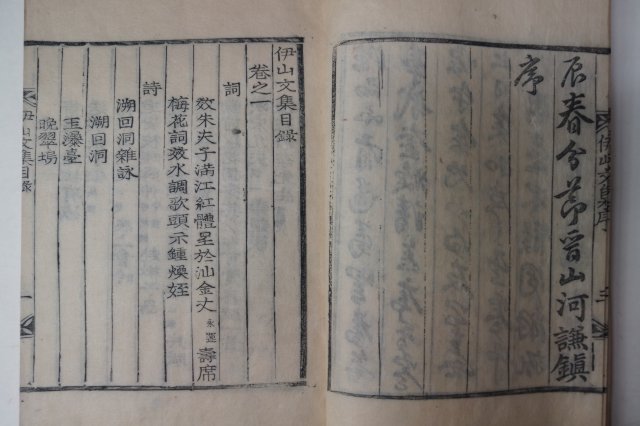 辰春分節晉山河謙鎭
序
伊山文集目錄
卷之一
詞
效朱夫子滿江紅體呈於汕金丈 壽席
梅花詞效水調歌頭示鍾煥姪
詩
溯回洞雜詠
溯回洞
玉瀑臺
晩翠場
伊山文集目錄 一